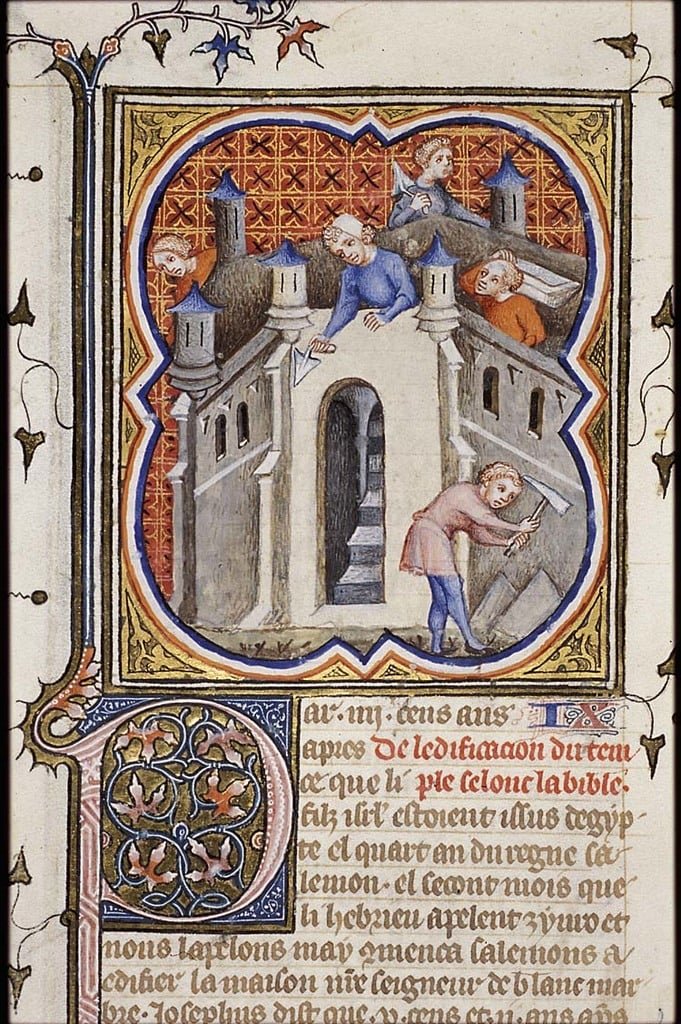 Par · iiij · cens ans IX
apres De ledificacion du tem
ce que li ple selonc la bible ·
filz isrl' estoient issus degyp-
te el quart an du regne sa-
lemon · el secont mois que
li hebrieu apelent zywo et
nous lapelons may ꝯmenca salemons a
edifier la maison nr̃e seigneur de blanc mar
bre · Josephus dist que · v · cens et · ii · ans ap̃s